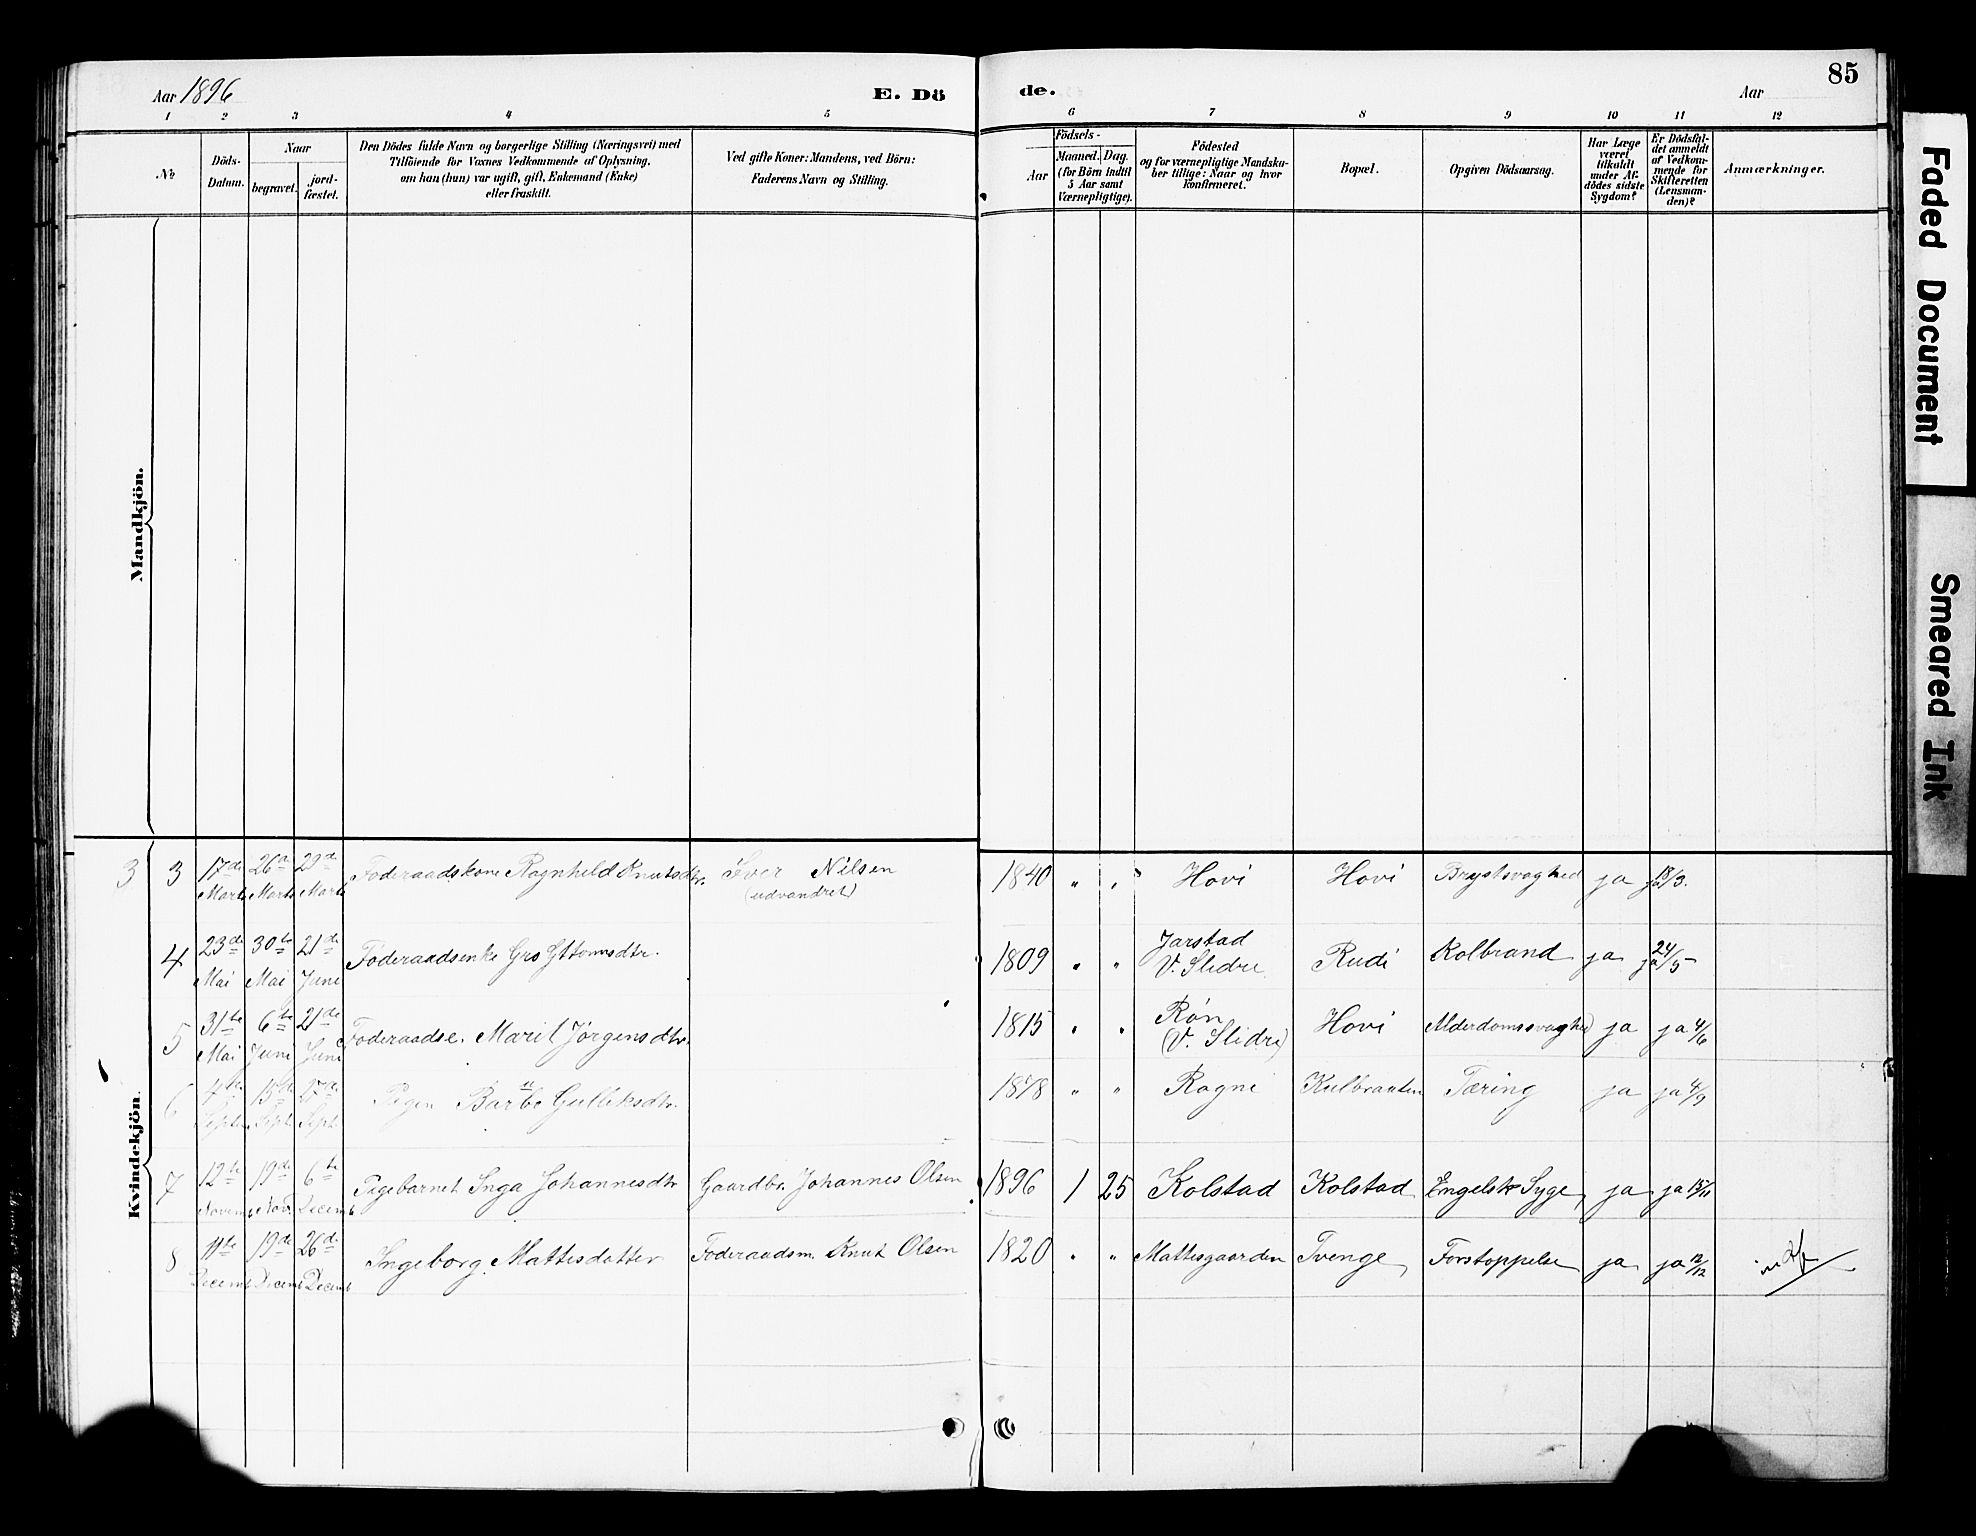 Aar 1896
E. Dö
de.
Aar
85
1 2 3 4 5 6 7 8 9 10 11 12
№
Döds-
Datum.
Naar
begravet.
jord-
fæstet.
Den Dödes fulde Navn og borgerlige Stilling (Næringsvei) med
Tilföiende for Voxnes Vedkommende af Oplysning,
om han (hun) var ugift, gift, Enkemand (Enke)
eller fraskilt.
Ved gifte Koner: Mandens, ved Börn:
Faderens Navn og Stilling.
Födsels-
Aar
Maaned. Dag.
(for Börn indtil
5 Aar samt
Værnepligtige).
Födested
og for værnepligtige Mandska-
ber tillige: Naar og hvor
konfirmeret.
Bopæl.
Opgiven Dödsaarsag.
Har Læge
været
tilkaldt
under Af-
dödes sidste
Sygdom?
Er Dödsfal-
det anmeldt
af Vedkom-
mende for
Skifteretten
(Lensman-
den)?
Anmærkninger.
Mandkjön.
Kvindekjön.
3 3 17de Marts 26de Marts 29de Marts Føderaadskone Ragnhild Knutsdtr. Iver Nilsen (udvandret) 1840 " " Hovi Hovi Brystsvaghed ja ja 18/3.
4 23de Mai 30te Mai 21de Juni Føderaadsenke Gro Ottomsdtr. 1809 " " Jarstad V. Slidre Rudi Kolbrand ja ja 24/5
5 31te Mai 6te Juni 21de Juni Føderaadse. Marit Jørgensdtr. 1815 " " Røn (V. Slidre) Hovi Alderdomssvaghed ja ja 4/6
6 4de Septe 15de Sept. 17de Sept. Pigen Barbo Gulliksdtr. 1878 " " Rogne Kulbraaten Tæring ja ja 4/9
7 12te Novemb 19de Nov. 6te Decemb Pigebarnet Inga Johannesdtr Gaardbr. Johannes Olsen 1896 1 25 Kolstad Kolstad Engelsk Syge ja ja 15/11
8 11te Decemb 19de Decemb 26de Decemb Ingeborg Mattisdatter Føderaadsm. Knut Olsen 1820 " " Mattisgaarden Tvenge Forstoppelse ja ja 12/12
Faded Document
Smeared Ink